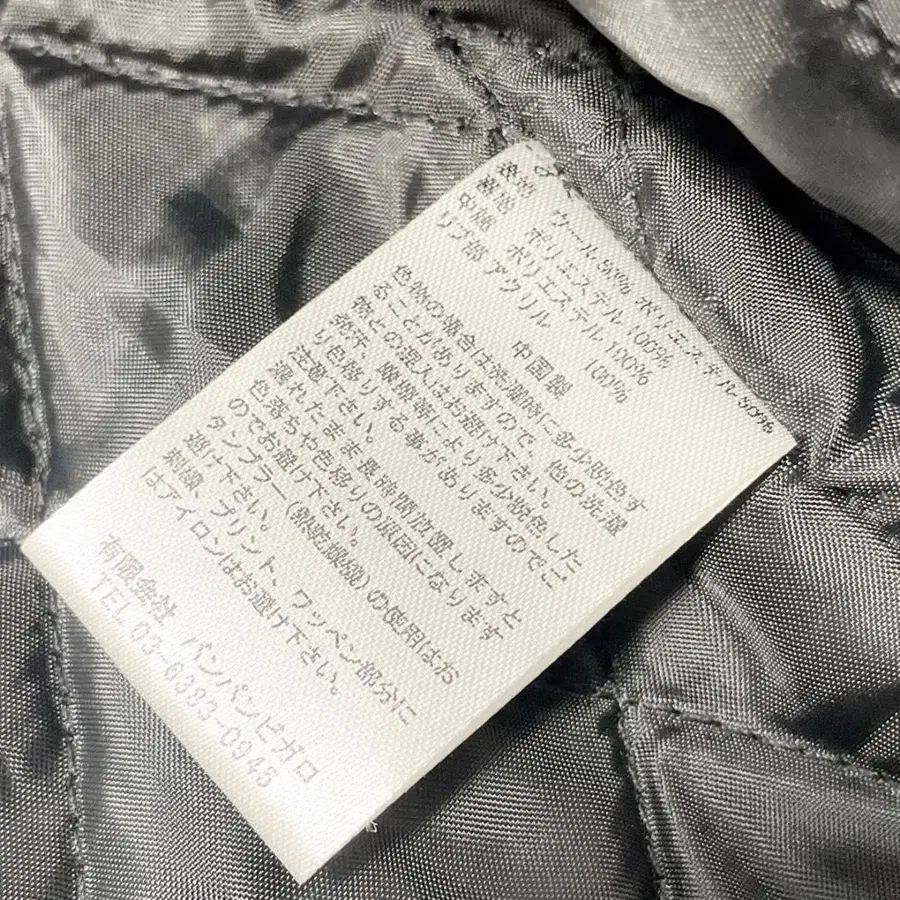 表地 ウール 50% ポリエステル 50%
裏地 ポリエステル 100%
中綿 ポリエステル 100%
リブ部 アクリル 100%
中国製
色物の場合は洗濯時に多少脱色す
ることがありますので、他の洗濯
物との混入はお避け下さい。
発汗、摩擦等により多少脱色した
り色移りする事がありますのでご
注意下さい。
濡れたまま長時間放置しますと
色落ちや色移りの原因になります
のでお避け下さい。
タンブラー(熱乾燥機)の使用はお
避け下さい。
刺繍、プリント、ワッペン部分に
はアイロンはお避け下さい。
有限会社 パンパンピガロ
TEL 03-6383-0945